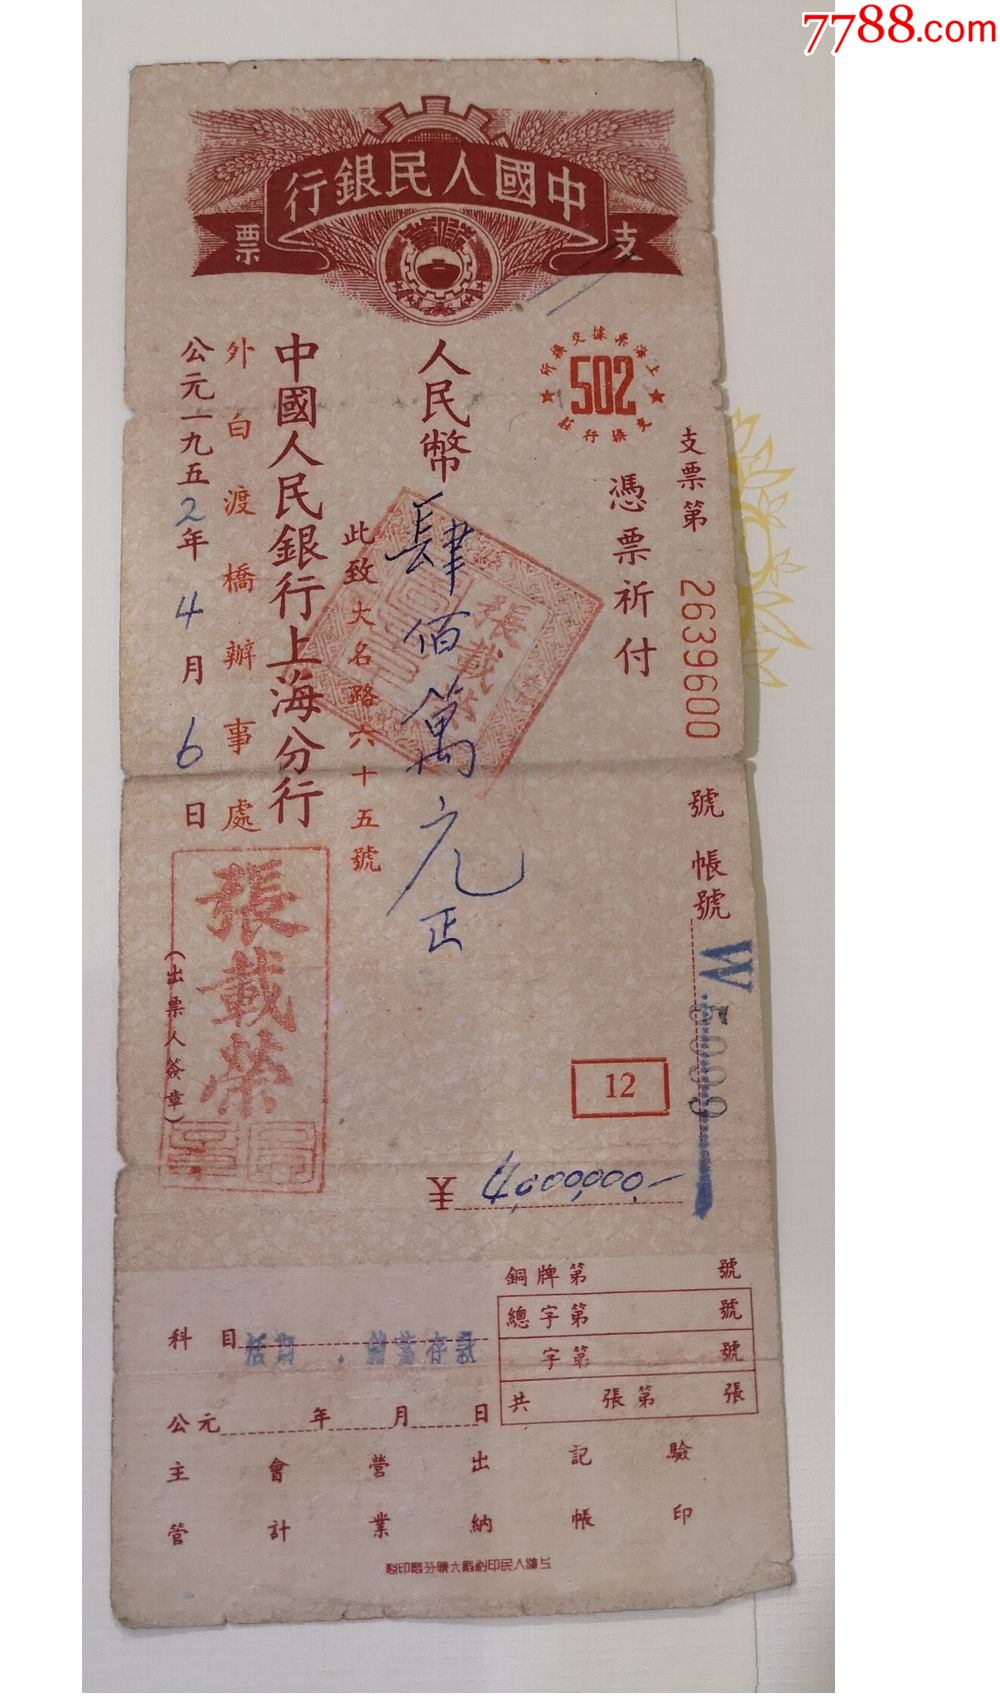 7788.com
中國人民銀行
支票
上海票據交換所
502
交換行號
支票第 2639600 號 帳號 W.
憑票祈付
人民幣 肆佰萬元正
張載榮
此致大名路六十五號
中國人民銀行上海分行
外白渡橋辦事處
公元一九五2年4月6日
張載榮
(出票人簽章)
12
4,000,000.-
銅牌第 號
總字第 號
字第 號
共 張第 張
科目 活期 儲蓄存款
公元 年 月 日
主管 會計 營業 出納 記帳 驗印